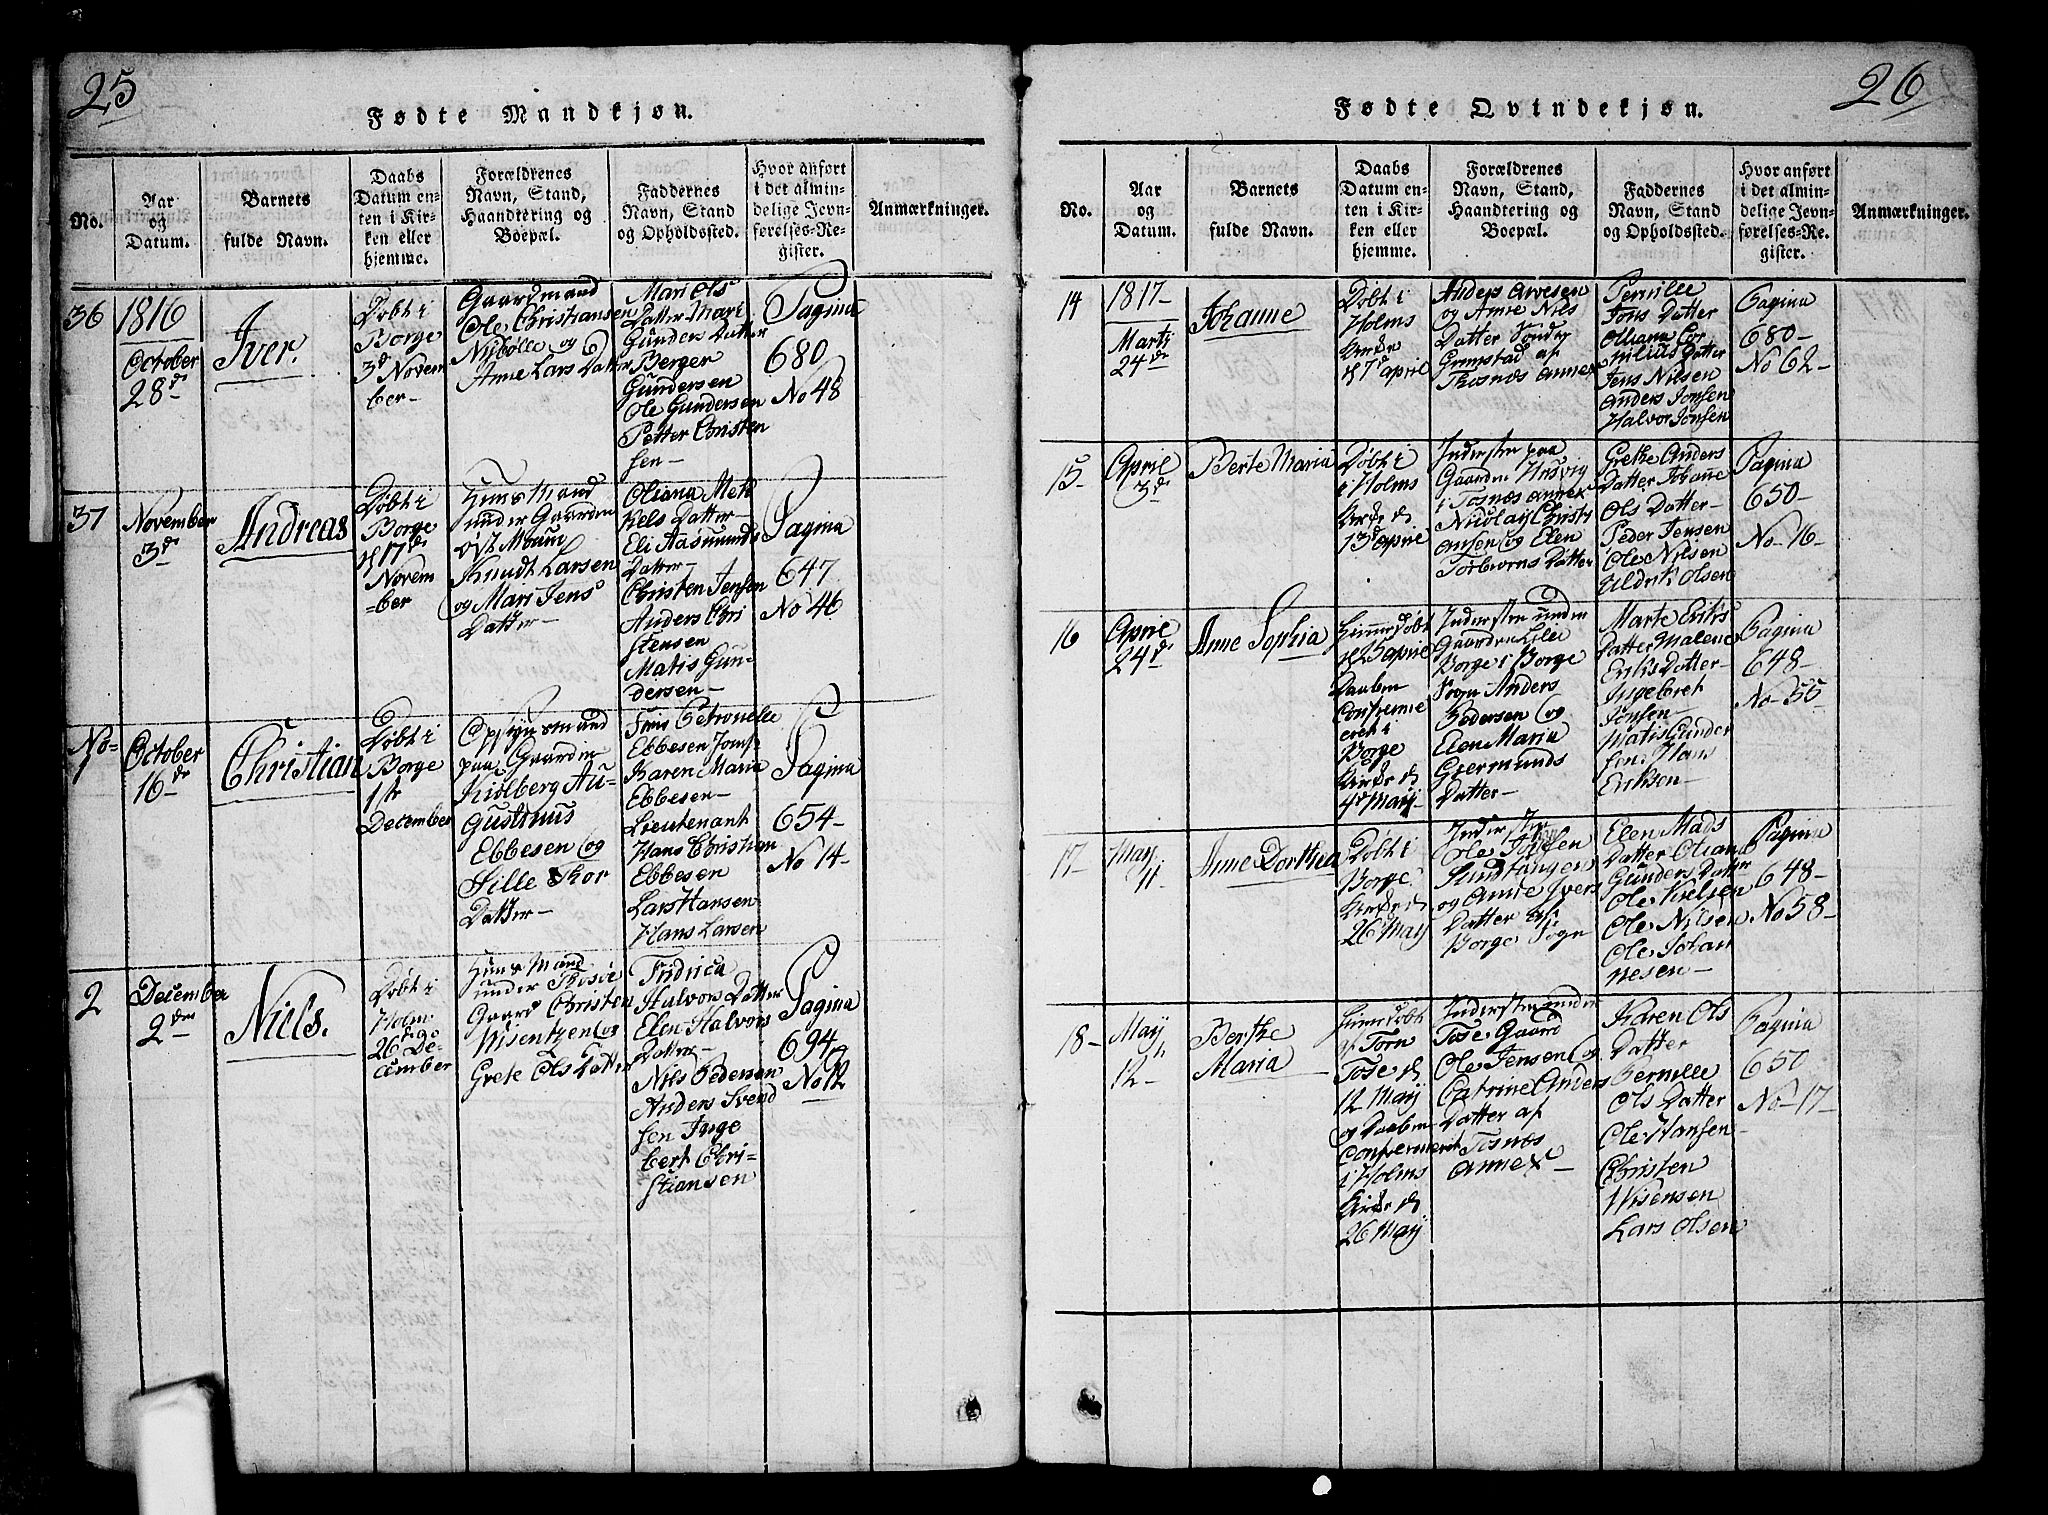 25
Fødte Mandkjøn.
No.
Aar
og
Datum.
Barnets
fulde Navn.
Daabs
Datum en-
ten i Kir-
ken eller
hjemme.
Forældrenes
Navn, Stand,
Haandtering og
Boepæl.
Faddernes
Navn, Stand
og Opholdssted.
Hvor anført
i det almin-
delige Jevn-
førelses-Re-
gister.
Anmærkninger.
36
1816
October
28de
Iver.
Døbt i
Borge
3d Novem
ber-
Gaardmand
Ole Christiansen
Nybølle og
Anne Lars Datter
Mari Ols
Datter Mari
Gunders Datter
Berger
Gundersen
Ole Gundersen
Petter Christen
sen-
Pagina
680
No 48
37
November
3de
Andreas
Døbt i
Borge
d 17de
Novem
-ber
Huusmand
under Gaarden
øst Moum
Knudt Larsen
og Mari Jens
Datter-
Oliana Meh
Kels Datter-
Eli Aasmunds
Datter-
Christen Jensen
Anders Chri
stensen
Matis Gun-
dersen-
Pagina
647
No 46
No-
1
October
16de
Christian
Døbt i
Borge
1ste
December
Opsynsmand
paa Gaarden
Kiølberg Au-
gustinus
Ebbesen og
Sille Tor
Datter-
Frue Petronelle
Ebbesen Jomf
Karen Maria
Ebbesen-
Lieutenant
Hans Christian
Ebbesen
Lars Hansen
Hans Larsen
Pagina
654-
No 14-
2
December
2den
Niels.
Døbt i
Holm
26de De-
cember
Huusmand
under Thosøe
Gaard Christen
Wisentzen og
Grete Ols Datter
Fridrica
Halvors Datter
Elen Halvors
Datter-
Nils Pedersen
Anders Svend
sen Inge
bert Chri-
stiansen
Pagina
694
No 12
26
Fødte Qvindekjøn.
No.
Aar
og
Datum.
Barnets
fulde Navn.
Daabs
Datum en-
ten i Kir-
ken eller
hjemme.
Forældrenes
Navn, Stand,
Haandtering og
Boepæl.
Faddernes
Navn, Stand
og Opholdssted.
Hvor anført
i det almin-
delige Jevn-
førelses-Re-
gister.
Anmærkninger.
14
1817-
Marti
24de
Johanne
Døbt i
Holms
Kirke
d 7d april
Anders Arvesen
og Anne Nils
Datter Sønder
Grimstad af
Thosnæs Annex
Pernille
Jons Datter
Olliana Cor
nilius Datter
Jens Nilsen
Anders Jonsen
Halvor Jonsen
Pagina
680-
No 62-
15-
April
3de
Berte Maria
Døbt i
i Holms
Kirke d
13d april
Inderster paa
Gaarden Ursvig
i Tosnæs annex
Nicolaij Christi
ansen og Elen
Torbiørns Datter
Grethe Anders
Datter Johanne
Ols Datter-
Peder Jensen
Ole Nilsen
Uldrik Olsen
Pagina
650-
No-16-
16
April
24de
Anne Sophia
Hiemedøbt
d 25 april
Daaben
Confirme
eret i
Borge
Kirke d
4d Maij-
Inderster under
Gaarden Lille
Borge i Borge
Sogn Anders
Pedersen og
Elen Maria
Giermunds
Datter-
Marte Eriks
Datter Malene
Eriks Datter-
Ingebret
Jonsen-
Matis Gunder
sen. Hans
Eriksen-
Pagina
648-
No-55-
17-
Maij
11
Anne Dorthea
Døbt i
Borge
Kirke d
26 Maij
Inderster
Ole Jonsen
Sundtangen
og Anne Ivers
Datter af
Borge Sogn
Elen Mads
Datter Oliana
Gunders Datter
Ole Kielsen
Ole Nilsen
Ole Johan
nesen-
Pagina
648-
No 58-
18-
Maij
12-
Berthe
Maria
Hiemedøbt
af Jorn
Tose d
12 Maij
og Daaben
Confirmeret
i Holms
Kirke d
26 Maij
Inderster under
Tose Gaard
Ole Jensen og
Catrine Anders
Datter af
Tosnæs
Annex-
Karen Ols
Datter
Pernille
Ols Datter
Ole Hansen
Christen
Wisensen
Lars Olsen
Pagina
650
No-17-